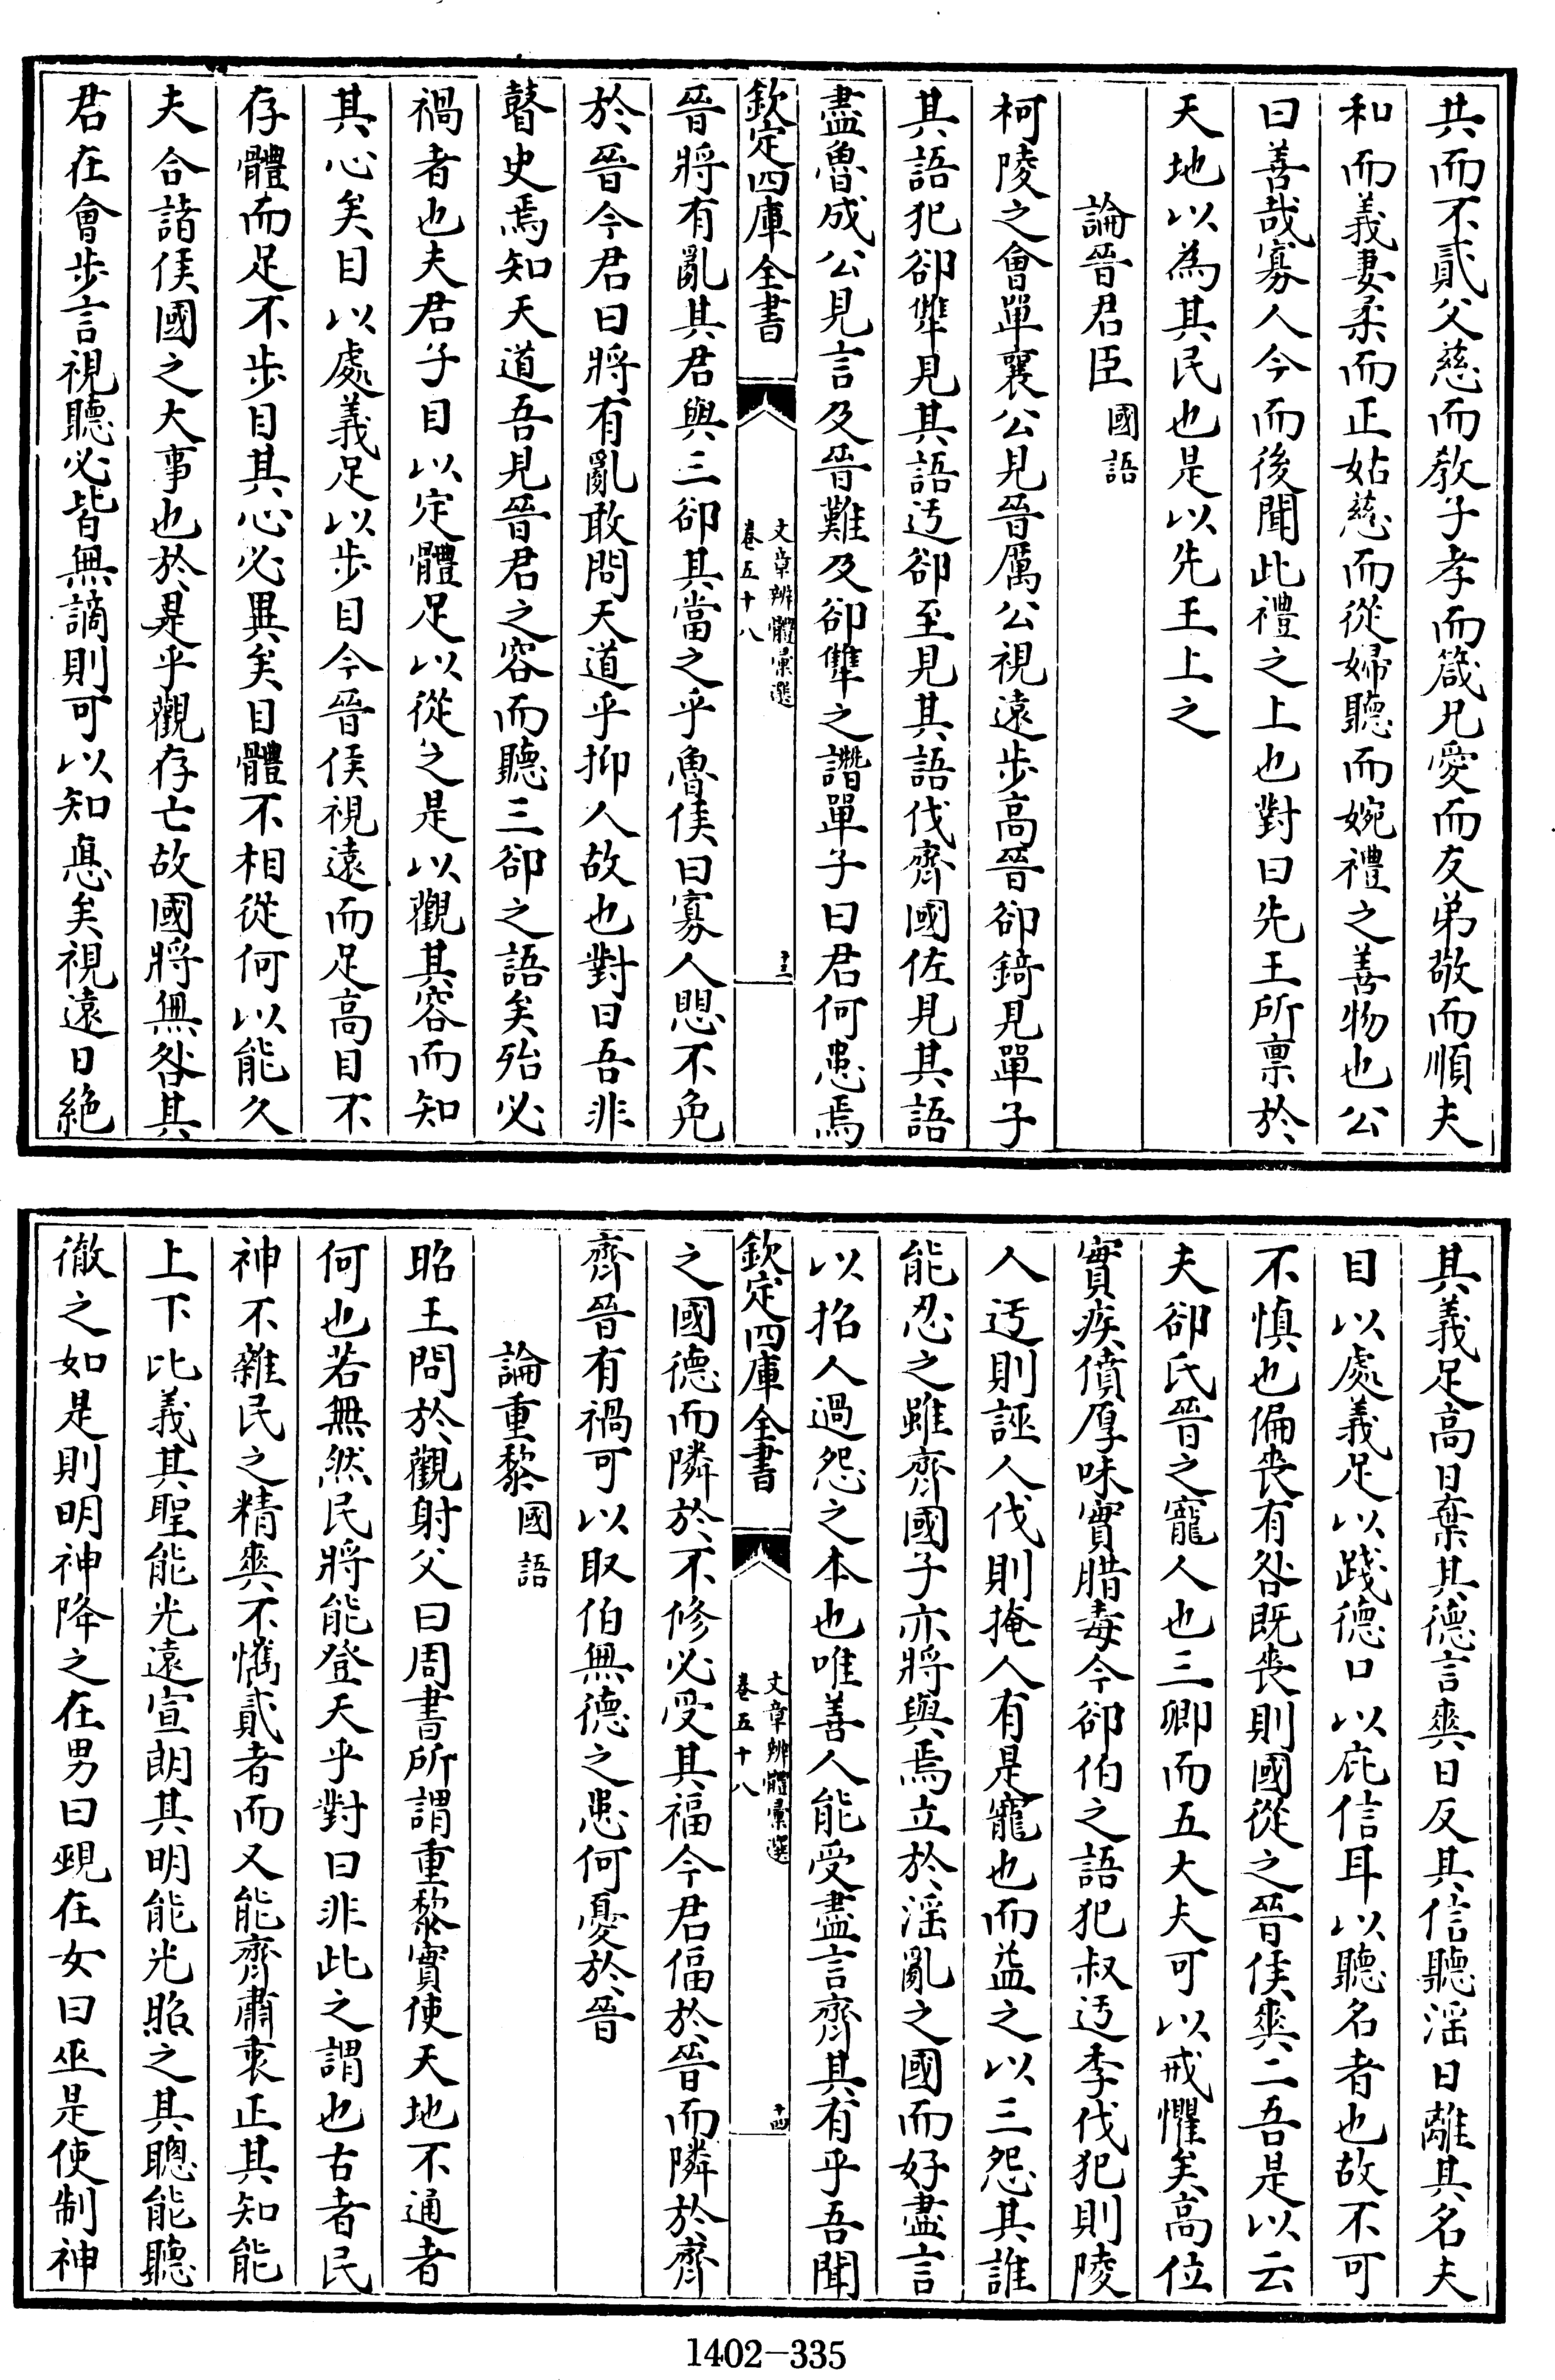 共而不貳父慈而教子孝而箴兄愛而友弟敬而順夫
和而義妻柔而正姑慈而從婦聽而婉禮之善物也公
曰善哉寡人今而後聞此禮之上也對曰先王所稟於
天地以為其民也是以先王上之
論晉君臣國語
柯陵之會單襄公見晉厲公視遠步高晉郤錡見單子
其語犯郤犨見其語迃郤至見其語伐齊國佐見其語
盡魯成公見言及晉難及郤犨之譖單子曰君何患焉
欽定四庫全書
文章辨體彙選
卷五十八
十三
晉將有亂其君與三郤其當之乎魯侯曰寡人思不免
於晉今君曰將有亂敢問天道乎抑人故也對曰吾非
瞽史焉知天道吾見晉君之容而聽三郤之語矣殆必
禍者也夫君子目以定體足以從之是以觀其容而知
其心矣目以處義足以步目今晉侯視遠而足高目不
存體而足不步目其心必異矣目體不相從何以能久
夫合諸侯國之大事也於是乎觀存亡故國將無咎其
君在會步言視聽必皆無謫則可以知悳矣視遠日絶
其義足高日棄其德言爽日反其信聽淫日離其名夫
目以處義足以踐德口以庇信耳以聽名者也故不可
不慎也偏喪有咎既喪則國從之晉侯爽二吾是以云
夫郤氏晉之寵人也三卿而五大夫可以戒懼矣高位
實疾僨厚味實腊毒今郤伯之語犯叔迃季伐犯則陵
人迃則誣人伐則掩人有是寵也而益之以三怨其誰
能忍之雖齊國子亦將與焉立於淫亂之國而好盡言
以招人過怨之本也唯善人能受盡言齊其有乎吾聞
欽定四庫全書
文章辨體彙選
卷五十八
十四
之國德而隣於不修必受其福今君偪於晉而隣於齊
齊晉有禍可以取伯無德之患何憂於晉
論重黎國語
昭王問於觀射父曰周書所謂重黎實使天地不通者
何也若無然民將能登天乎對曰非此之謂也古者民
神不雜民之精爽不㩦貳者而又能齊肅衷正其知能
上下比義其聖能光遠宣朗其明能光照之其聰能聽
徹之如是則明神降之在男曰覡在女曰巫是使制神
1402-335